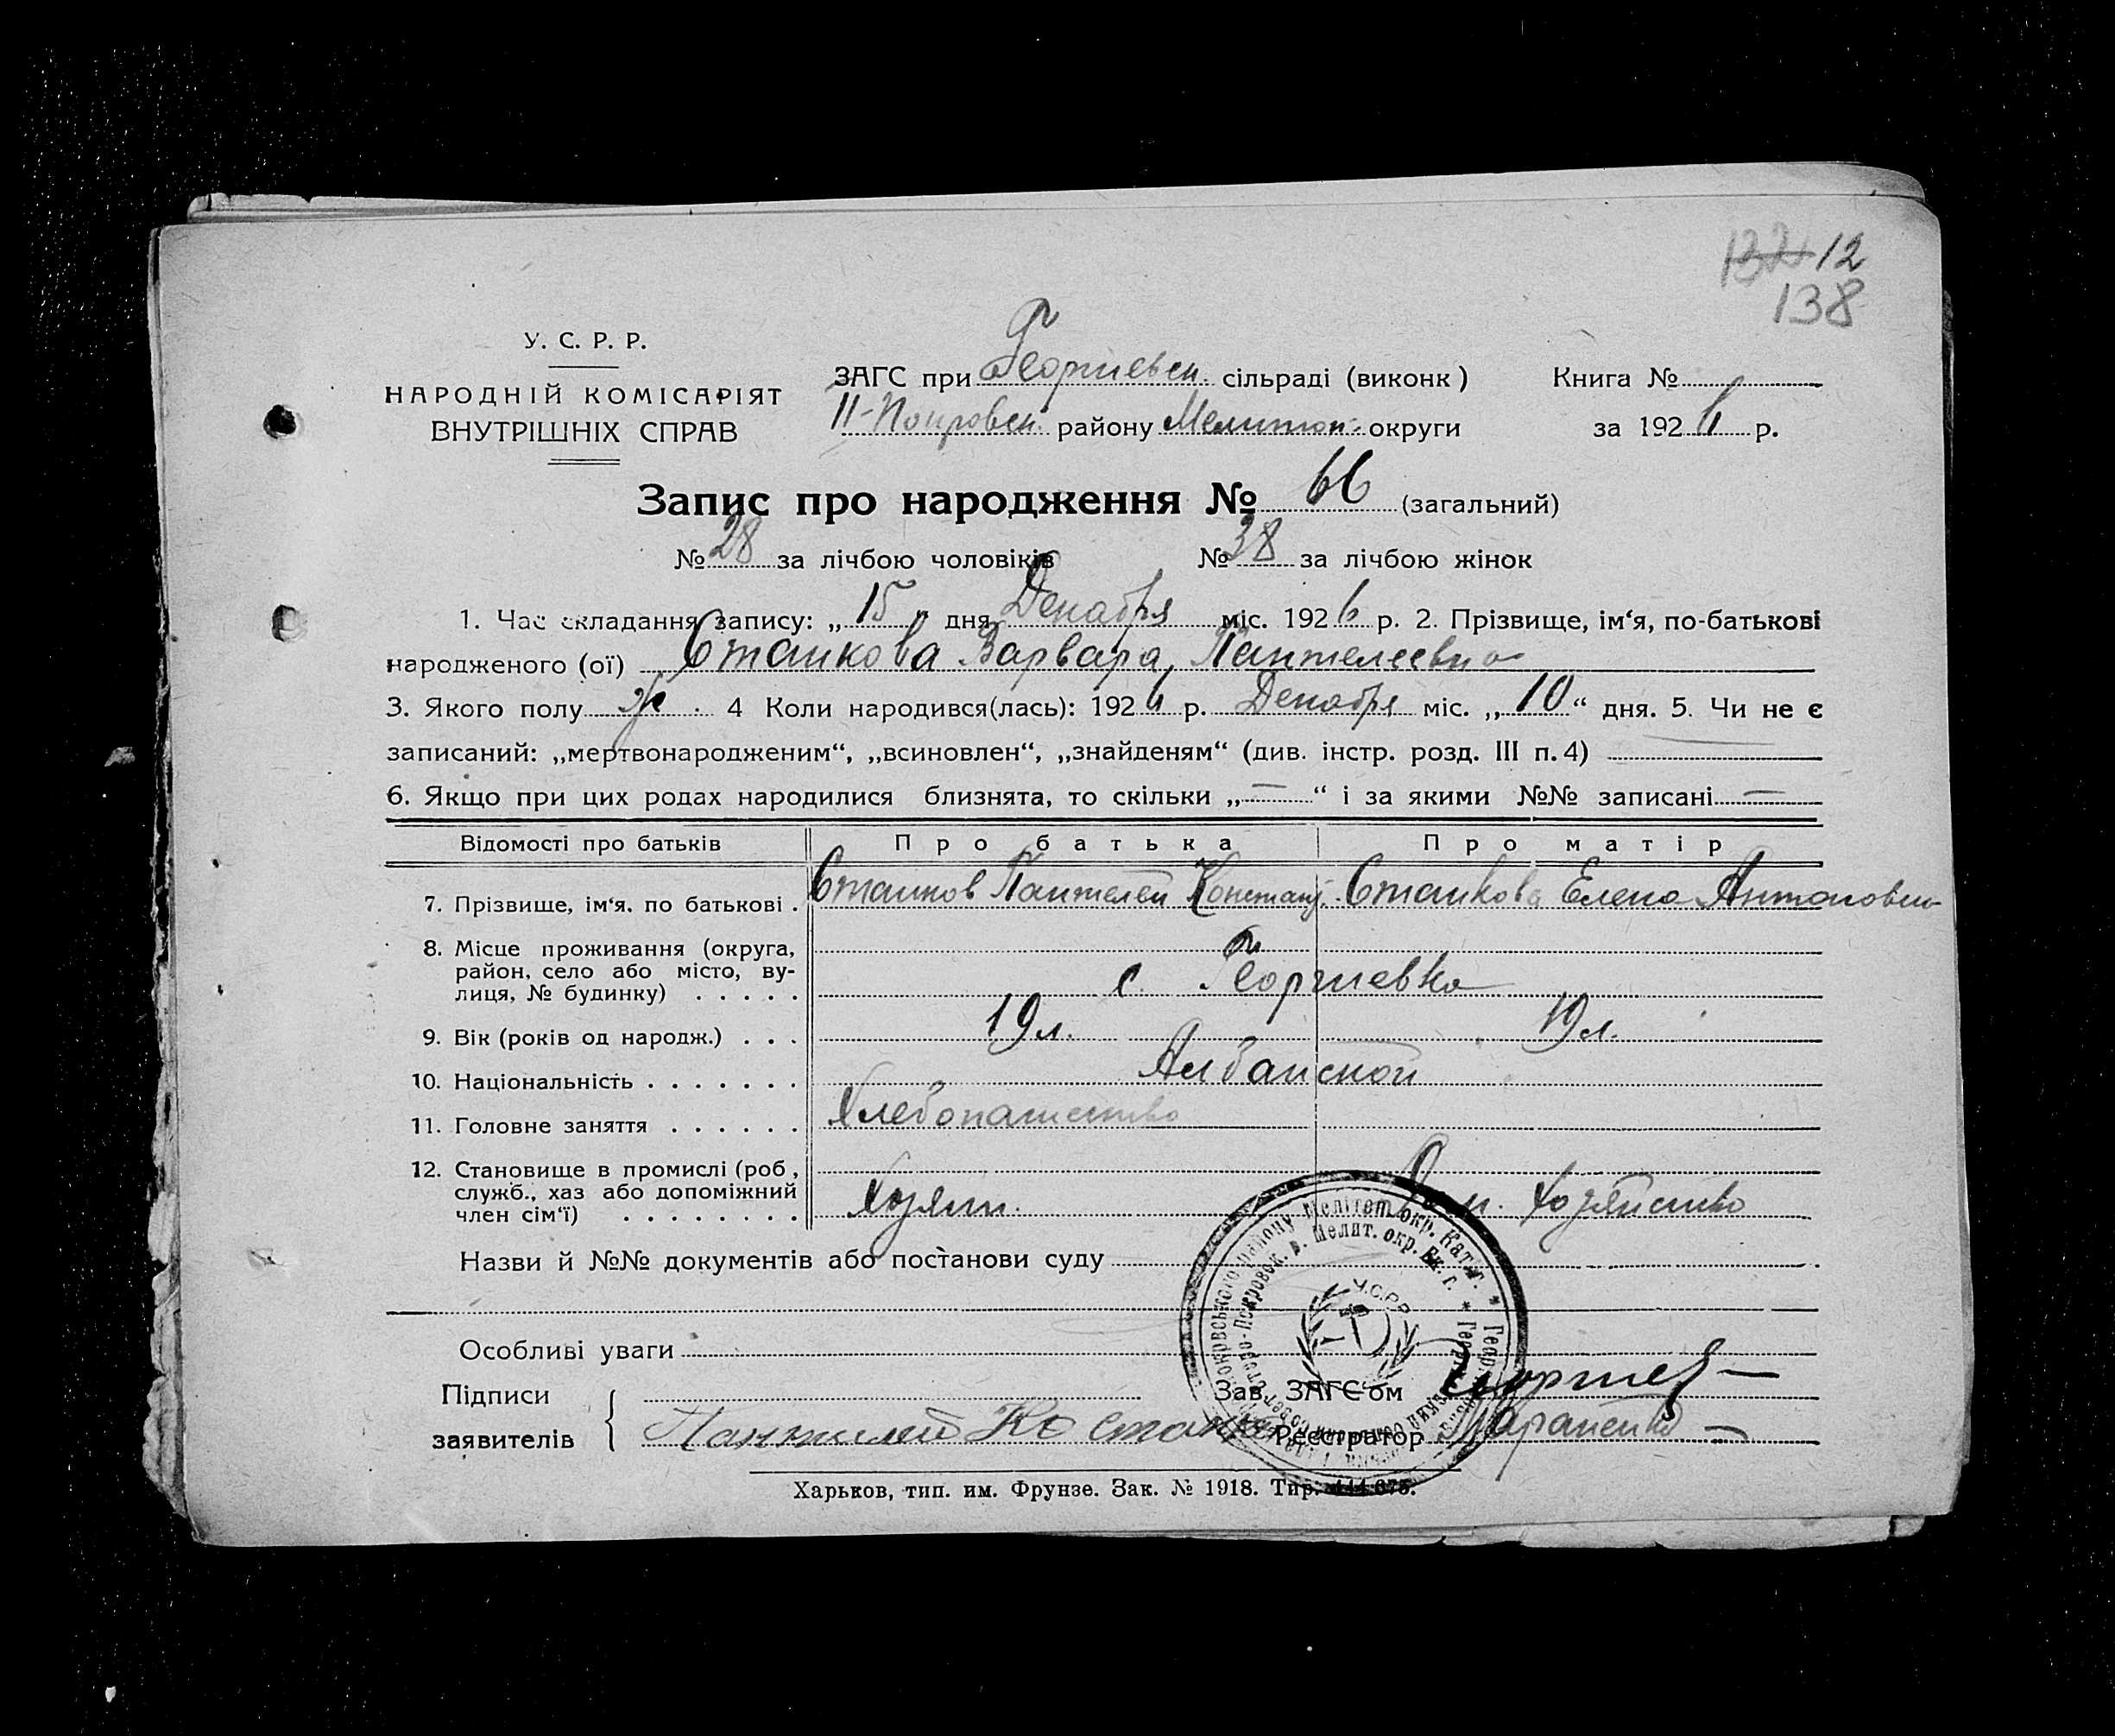 132 12
138
У. С. Р. Р.
НАРОДНІЙ КОМІСАРІЯТ
ВНУТРІШНІХ СПРАВ
ЗАГС при Георгиевск. сільраді (виконк)
Книга №
II-Покровск. району Мелитоп. округи
за 1926 р.
Запис про народження № 66 (загальний)
№ 28 за лічбою чоловіків № 38 за лічбою жінок
1. Час складання запису: „15„ дня Декабря міс. 1926 р. 2. Прізвище, ім‘я, по-батькові
народженого (ої) Станкова Варвара, Пантелеевна
3. Якого полу ж. 4 Коли народився(лась): 1926 р. Декабря міс. „10“ дня. 5. Чи не є
записаний: „мертвонародженим“, „всиновлен“, „знайденям“ (див. інстр. розд. III п. 4)
6. Якщо при цих родах народилися близнята, то скільки „—“ і за якими №№ записані —
Відомості про батьків Про батька Про матір
7. Прізвище, ім‘я. по батькові . Станков Пантелей Констант. Станкова Елена Антоновна
8. Місце проживання (округа,
район, село або місто, ву-
лиця, № будинку) . . . . . с. Георгиевка
9. Вік (років од народж.) . . . 19 л. 19 л.
10. Національність . . . . . . . Албанской
11. Головне заняття . . . . . . Хлебопашество
12. Становище в промислі (роб,
служб., хаз або допоміжний
член сім‘ї) . . . . . . . . Хозяин. Хозяйство
Назви й №№ документів або постанови суду
У.С.Р.Р.
Особливі уваги
Підписи
заявителів
Зав. ЗАГС‘ом
Пантилей Ко Станков
Реєстратор
Харьков, тип. им. Фрунзе. Зак. № 1918. Тир. 444.675.